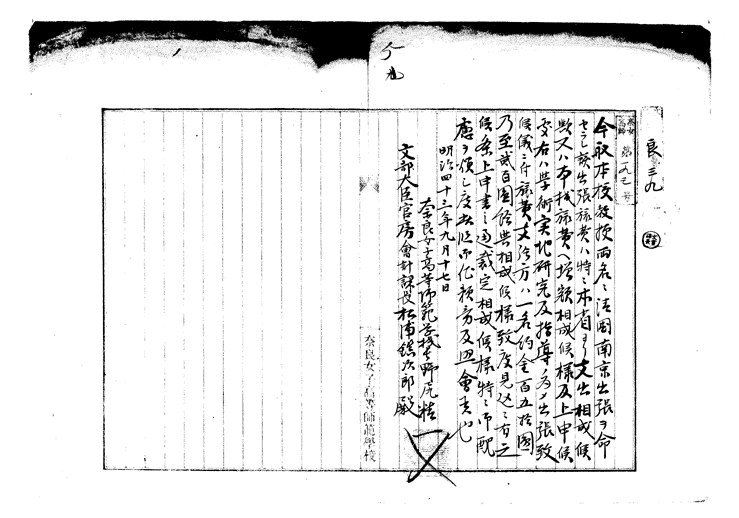 良三九
奈女高師 第一九三号
今般本校教授両名ニ清国南京出張ヲ命
セラレ該出張旅費ハ特ニ本省ヨリ支出相成候
歟又ハ本校旅費ヘ増額相成候様及上申候
処右ハ学術実地研究及指導ノ為メ出張致
候儀ニ付旅費支給方ハ一名約金百五拾圓
乃至貳百圓給與相成候様致度見込ニ有之
候条上申書之通裁定相成候様特ニ御配
慮ヲ煩シ度此段御依頼旁及照會候也
明治四十三年九月十七日
奈良女子高等師範学校長野尻精一
文部大臣官房會計課長松浦鎮次郎殿
奈良女子高等師範學校